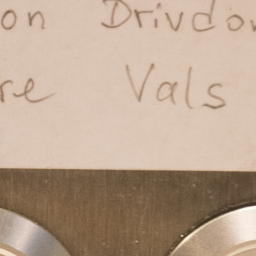 on Drivdo
re Vals